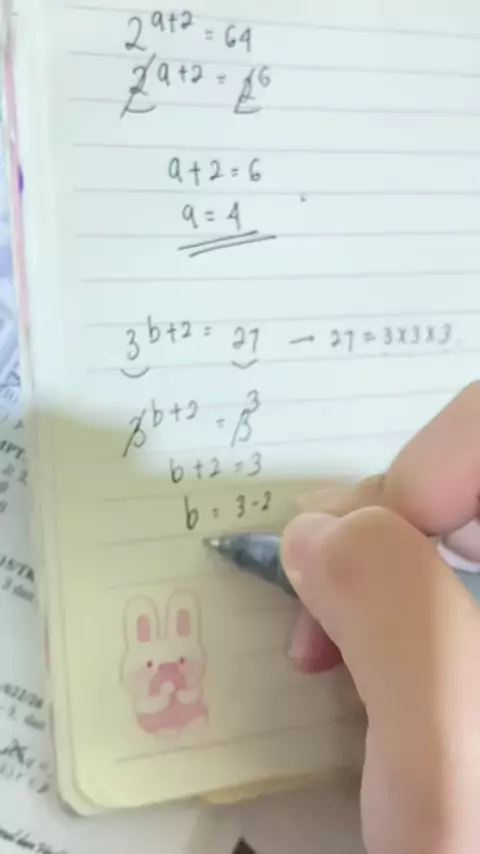 2^{a+2} = 64
2^{a+2} = 2^6
a+2 = 6
a = 4
3^{b+2} = 27 → 27 = 3×3×3
3^{b+2} = 3^3
b+2 = 3
b = 3-2